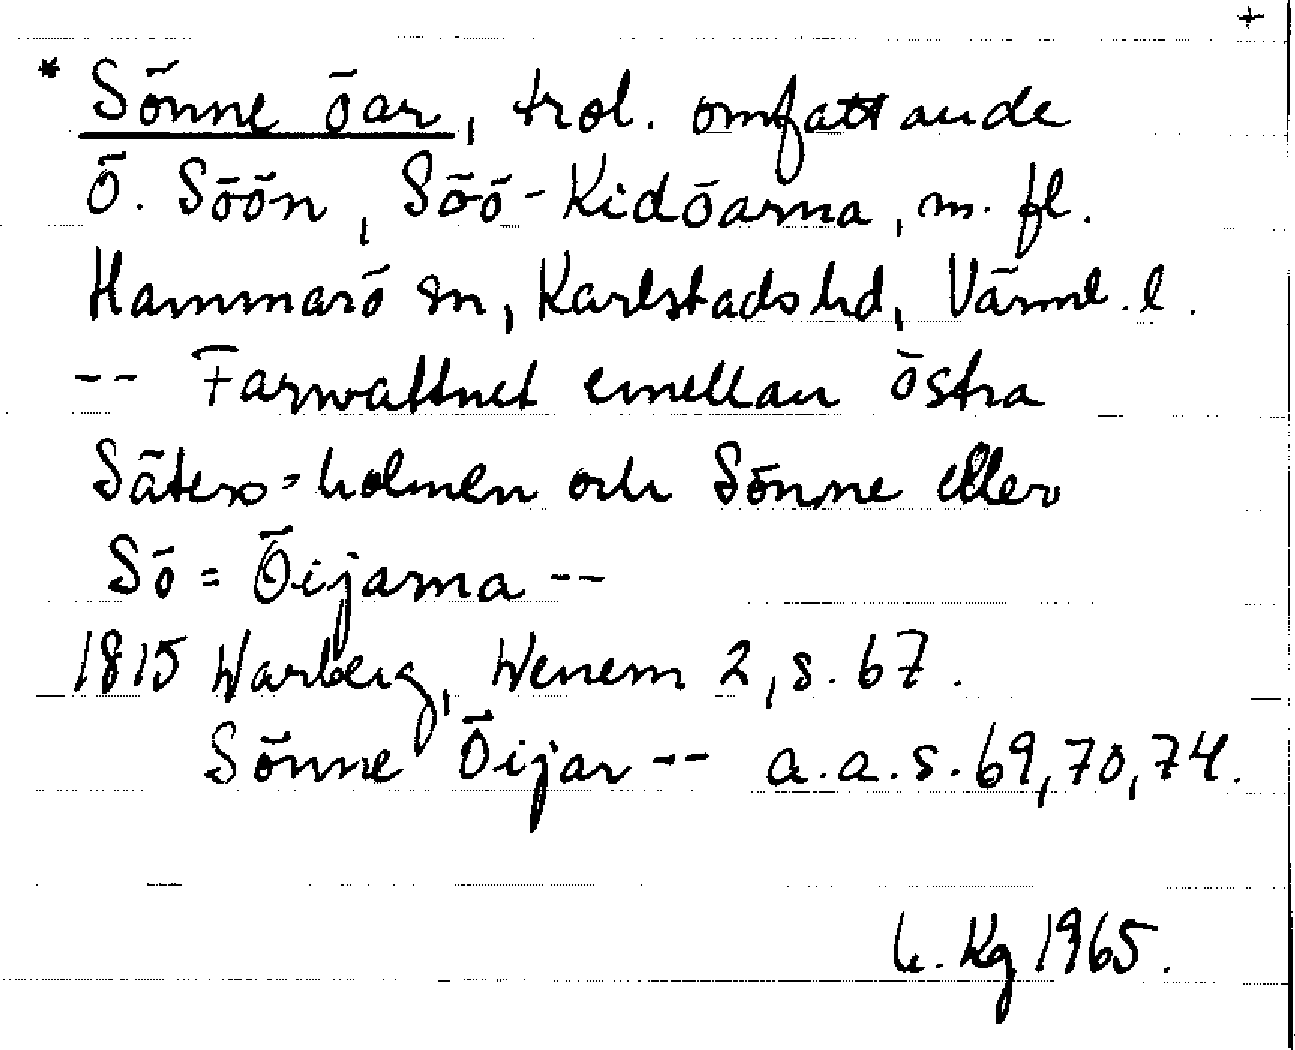 +
* Sönne öar, trol. omfattande
Ö. Söön, Söö-Kidöarna, m. fl.
Hammarö sn, Karlstads hd, Värml. l.
-- Farwattnet emellan östra
Säters=holmen och Sönne eller
Sö=Öijarna --
1815 Warberg, Wenern 2, s. 67.
Sönne Öijar -- a.a.s. 69, 70, 74.
Kg 1965.